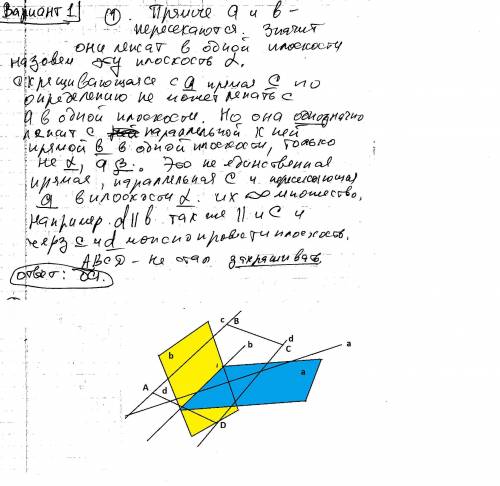 Вариант 1
① Прямые a и b -
пересекаются. Значит
они лежат в одной плоскости
назовем эту плоскость α.
скрещивающаяся с a прямая c по
определению не может лежать с
a в одной плоскости. Но она однозначно
лежит с параллельной к ней
прямой b в одной плоскости, только
не α, а β. Это не единственная
прямая, параллельная c и пересекающая
a в плоскости α. их ∞ множество.
Например d || b также || и c и
через c и d можно провести плоскость.
ABCD - не стал закрашивать
ответ: ∞.
c B
b
b
d
C
a
i
A
d
a
D